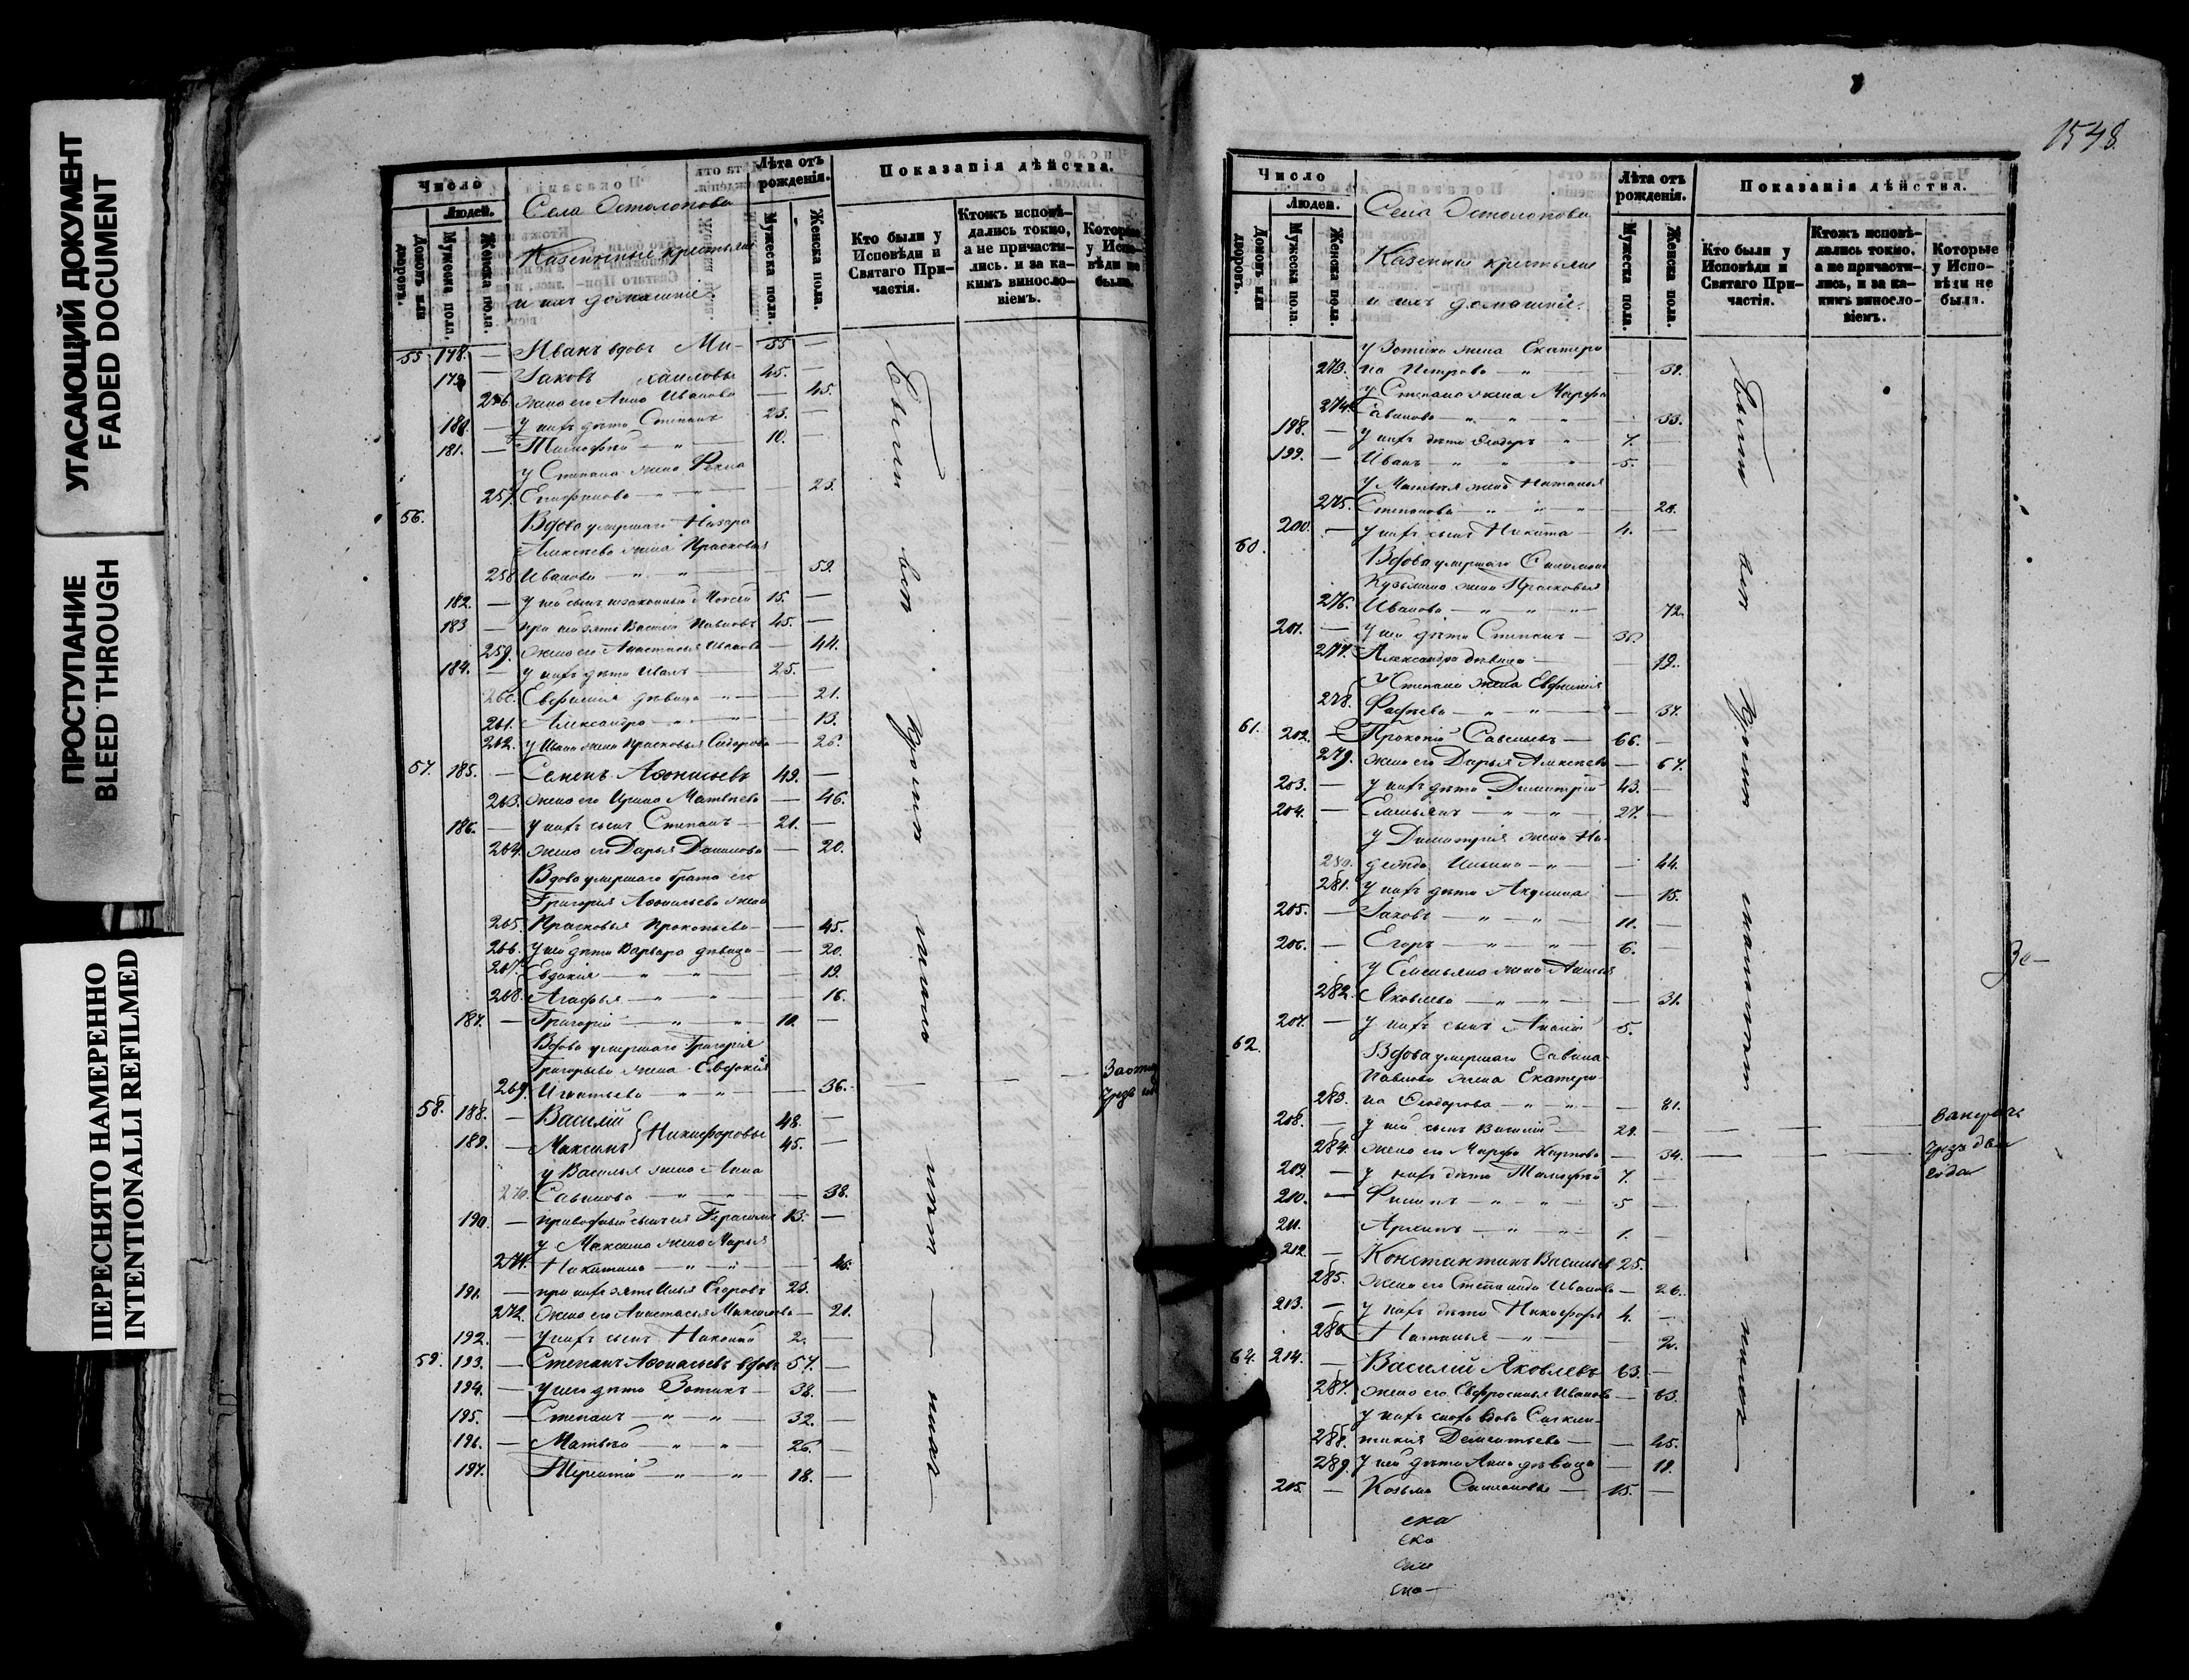 УГАСАЮЩИЙ ДОКУМЕНТ
FADED DOCUMENT
ПРОСТУПАНИЕ
BLEED THROUGH
ПЕРЕСНЯТО НАМЕРЕННО
INTENTIONALLI REFILMED
Число
Людей.
Домовъ или дворовъ.
Мужеска пола.
Женска пола.
Села Остолопова
Казенные крестьяне
и ихъ домашніе.
Лѣта отъ рожденія.
Мужеска пола.
Женска пола.
Показанія дѣйства.
Кто были у Исповѣди и Святаго При-частія.
Ктожъ исповѣ-дались токмо, а не причасти-лись. и за ка-кимъ винosло-віемъ.
Которые у Испо-вѣди не были.
55 178. — Иванъ вдовъ Ми- 55 —
179. — Іаковъ хаиловы 45. —
256. жена его Анна Иванова — 45.
180. — у нихъ дѣти Степанъ 23. —
181. — Тимофей — " — 10. —
у Степана жена Фекла
257. Епифанова — " — — 23.
56. Вдова умершаго Назара
Алексѣева жена Прасковья
258 Иванова — " — " — 59.
182. — у ней сынъ незаконный Моисей 15. —
183 — при ней зять Василій Павловъ 45. —
259. жена его Анастасья Иванова — 44.
184. — у нихъ дѣти Иванъ — 25. —
260. Евфимія дѣвица — " — 21.
261. Александра — " — " — 13.
262. у Ивана жена Прасковья Сидорова — 26.
57. 185. — Семенъ Афонасьевъ 49. —
263. жена его Ирина Матвѣева — 46.
186. — у нихъ сынъ Степанъ — 21. —
264. жена его Дарья Данилова — 20.
Вдова умершаго брата его
Григорія Афонасьева жена
265. Прасковья Прокопьева — — 45.
266. у ней дѣти Варвара дѣвица — 20.
267. Евдокія — " — " — 19.
268. Агафья — " — " — 16.
187. — Григорій — " — " 10. —
Вдова умершаго Григорія
Григорьева жена Евдокія
269. Игнатьева — " — " — 36. — — —
58. 188. — Василій } Никифоровы 48. —
189. — Максимъ 45. —
у Василья жена Анна
270. Савинова — " — " — 38.
190. — приводный сынъ ея Герасимъ 13. —
у Максима жена Марья
271. Никитина — " — " — 45.
191. — при нихъ зять Илья Егоровъ 23.
272. жена его Анастасья Максимова — 21.
192. — у нихъ сынъ Никонъ 2. —
59. 193. — Степанъ Афонасьевъ вдовъ 57. —
194. — у него дѣти Зотикъ — 38. —
195. — Степанъ — " — " — 32. —
196. — Матвѣй — " — " — 26. —
197. Терентій — " — " 18. —
Были вси
1548
Число
Людей.
Домовъ или дворовъ.
Мужеска пола.
Женска пола.
Села Остолопова
Казенные крестьяне
и ихъ домашніе.
Лѣта отъ рожденія.
Мужеска пола.
Женска пола.
Показанія дѣйства.
Кто были у Исповѣди и Святаго При-частія.
Ктожъ исповѣ-дались токмо. а не причасти-лись, и за ка-кимъ винocло-віемъ.
Которые у Испо-вѣди не были.
у Зотика жена Екатери
273. на Петрова — " — — 39.
у Степана жена Марфа
274. Савинова — " — " — 33.
198. — у нихъ дѣти Ѳеодоръ — " — 7. —
199. — Иванъ — " — " — 5. —
у Матвѣя жена Наталья
275. Степанова — " — " — 28.
200. — у нихъ сынъ Никита — 4. —
60. Вдова умершаго
Кузьмина жена Прасковья
276. Иванова — " — " — 72.
201. — у ней дѣти Степанъ — 38.
277. Александра дѣвица — — 19.
у Степана жена Евфимія
278. Фадѣева — " — " — 37.
61. 202. — Прокопій Савельевъ — 66. —
279. жена его Дарья Алексѣева — 67.
203. — у нихъ дѣти Димитрій 43. —
204. — Емельянъ — " — " — 27. —
у Димитрія жена На-
280. дежда Ильина — " — — 44.
281. у нихъ дѣти Акулина — 15.
205. — Іаковъ — " — " — 11. —
206. — Егоръ — " — " — 6. —
у Емельяна жена
282. Яковлева — " — " — 31.
207. — у нихъ сынъ Ананій 5. —
62. Вдова умершаго Савина
Павлова жена Екатери-
283. на Ѳеодорова — " — " — 81.
208. — у ней сынъ Василій — 29. — — — —
284. жена его Марфа Карпова — 34. — — —
209. — у нихъ дѣти Тимофей 7. —
210. — Филипъ — " — " — 5 —
211. Архипъ — " — " — 1. —
212. — Константинъ Васильевъ 25.
285. жена его Степанида Иванова — 26.
213. — у нихъ дѣти Никифоръ 4. —
286 Наталья — " — — 2.
64. 214. — Василій Яковлевъ 63. —
287. жена его Евфросинья Иванова — 63.
у нихъ сноха вдова Синкли-
288. тикія Дементьева — — 45.
289. у ней дѣти Анна дѣвица — 19.
205. — Козьма — 15. —
Были вси
чрезъ два
года